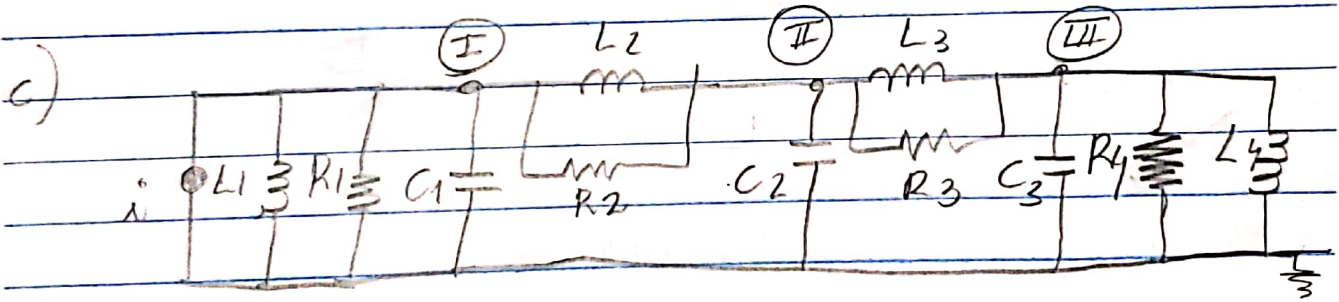 c)
I L2 II L3 III
i L1 R1 C1 R2 C2 R3 C3 R4 L4